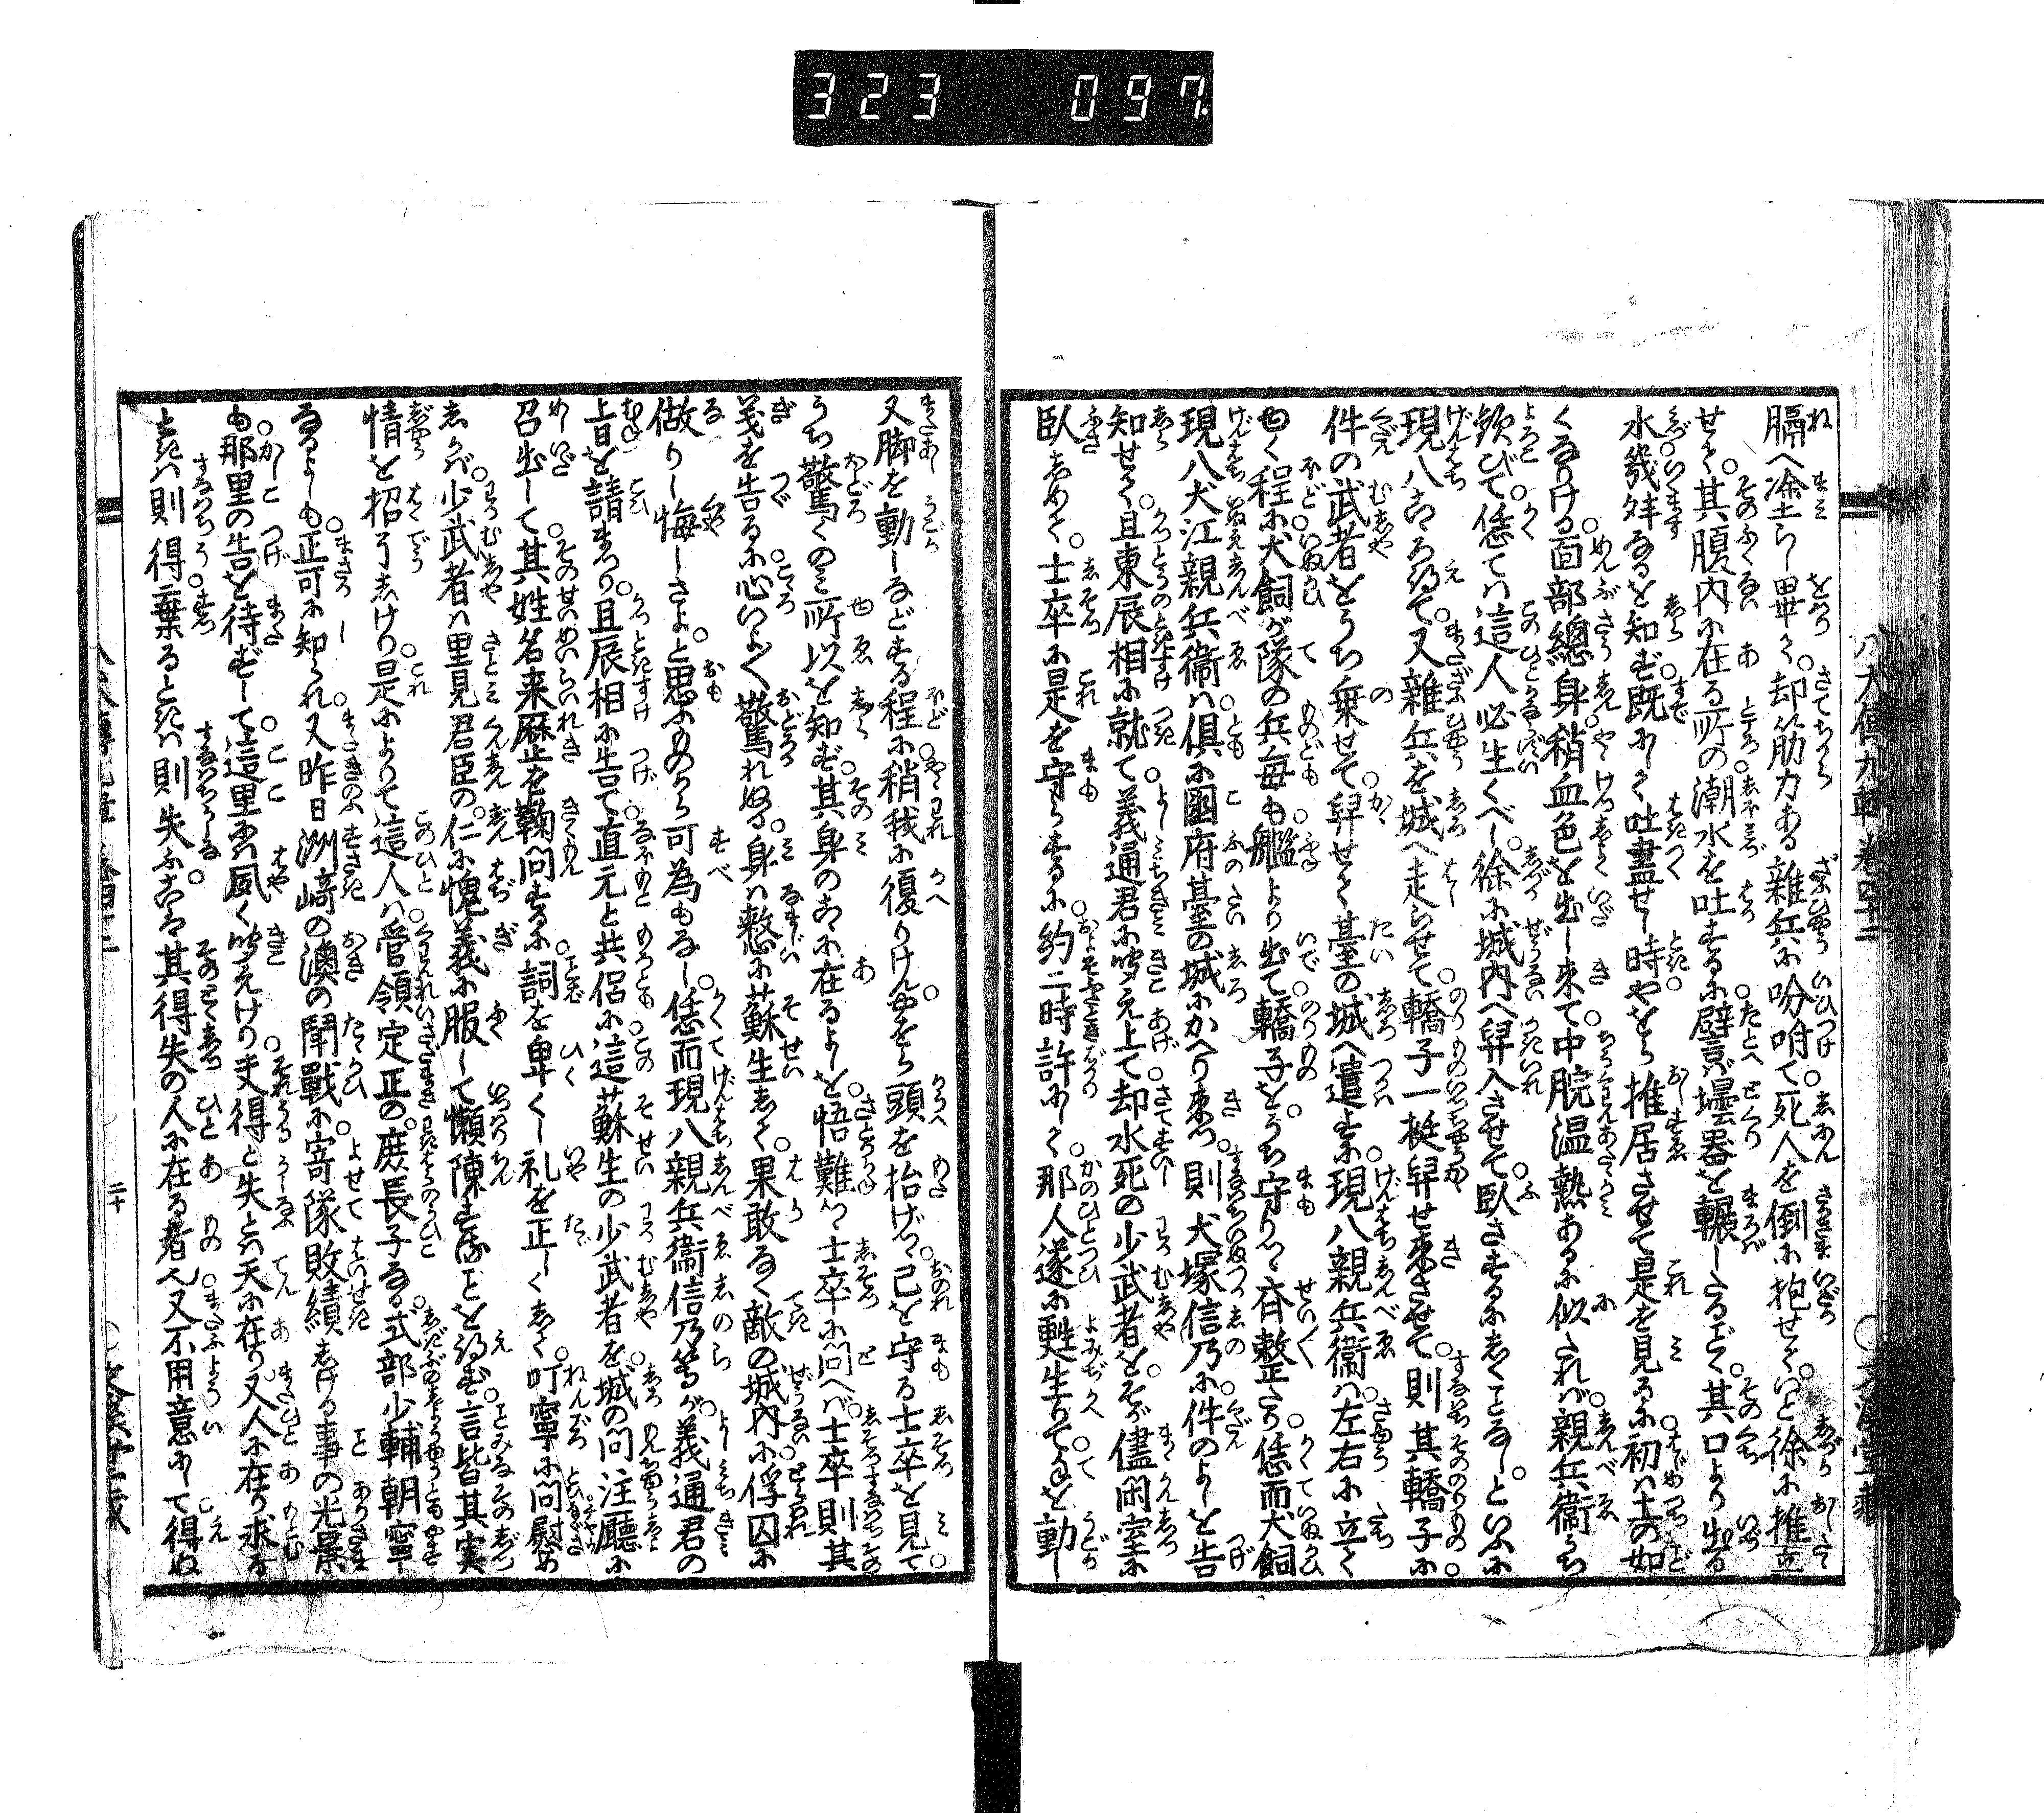 323 097
八犬傳九輯卷四十二
文溪堂藏
膈へ塗らし畢て却筋力ある雜兵に吩咐て死人を倒に抱せていと徐に推立
せて其腹内に在る所の潮水を吐するに譬ば壜器を輾したるごとく其口より出る
水幾舛なるを知ず既にして吐盡せし時やをら推居させて是を見るに初は土の如
くなりける面部總身稍血色を出し来て中脘温熱あるに似たれば親兵衞うち
欸びて恁ては這人必生くべし徐に城内へ舁入させて臥さするにしくことなしといふに
現八こころ得て又雜兵を城へ走らせて轎子一挺舁せ来させて則其轎子に
件の武者をうち乗せて舁せて臺の城へ遣すに現八親兵衞は左右に立て
ゆく程に犬飼が隊の兵毎も艦より出て轎子をうち守りつゝ斉整たり恁而犬飼
現八犬江親兵衞は倶に國府臺の城にかへり来つ則犬塚信乃に件のよしを告
知せて且東辰相に就て義通君に聞え上て却水死の少武者をそが儘閑室に
臥しめて士卒に是を守らするに約二時許にして那人遂に甦生りて手を動し
又脚を動しなどする程に稍我に復りけんやをら頭を抬げつゝ己を守る士卒を見て
うち驚くのみ所以を知ず其身のこゝに在るよしを悟難つゝ士卒に問へば士卒則其
義を告るに心いよゝ驚れぬる身は憖に蘇生して果敢なく敵の城内に俘囚に
做りし悔しさよと思ふのみから可為もなし恁而現八親兵衞信乃等が義通君の
上旨を請まつり且辰相に告て直元と共侶に這蘇生の少武者を城の問注廳に
召出して其姓名来歴を鞠問するに詞を卑くし礼を正しくして叮寧に問慰め
しかば少武者は里見君臣の仁に愧義に服して懶陳することを得ず言皆其実
情を招了しけり是によりて這人は管領定正の庶長子なる式部少輔朝寧
なるよしも正可に知られ又昨日洲﨑の澳の閗戰に寄隊敗績しける事の光景
も那里の告を待ずして這里には夙く聞えけり夫得と失とは天に在り又人に在り求る
ときは則得棄るときは則失ふこゝろ其得失の人に在る者也又不用意にして得ぬ
二十